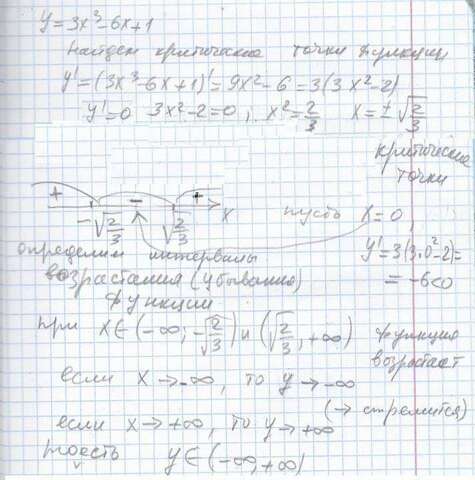 y = 3x³-6x+1
Найдем критические точки функции
y' = (3x³-6x+1)' = 9x²-6 = 3(3x²-2)
y' = 0 3x²-2=0, x² = 2/3 x = ± √(2/3)
критические
точки
+ - + x
-√(2/3) √(2/3)
пусть x = 0,
y' = 3(3·0²-2) =
= -6<0
определим интервалы
возрастания (убывания)
функции
при x ∈ (-∞; -√(2/3)) и (√(2/3), +∞) функция
возрастает
если x → -∞, то y → -∞
(→ стремится)
если x → +∞, то y → +∞
тоесть y ∈ (-∞, +∞)